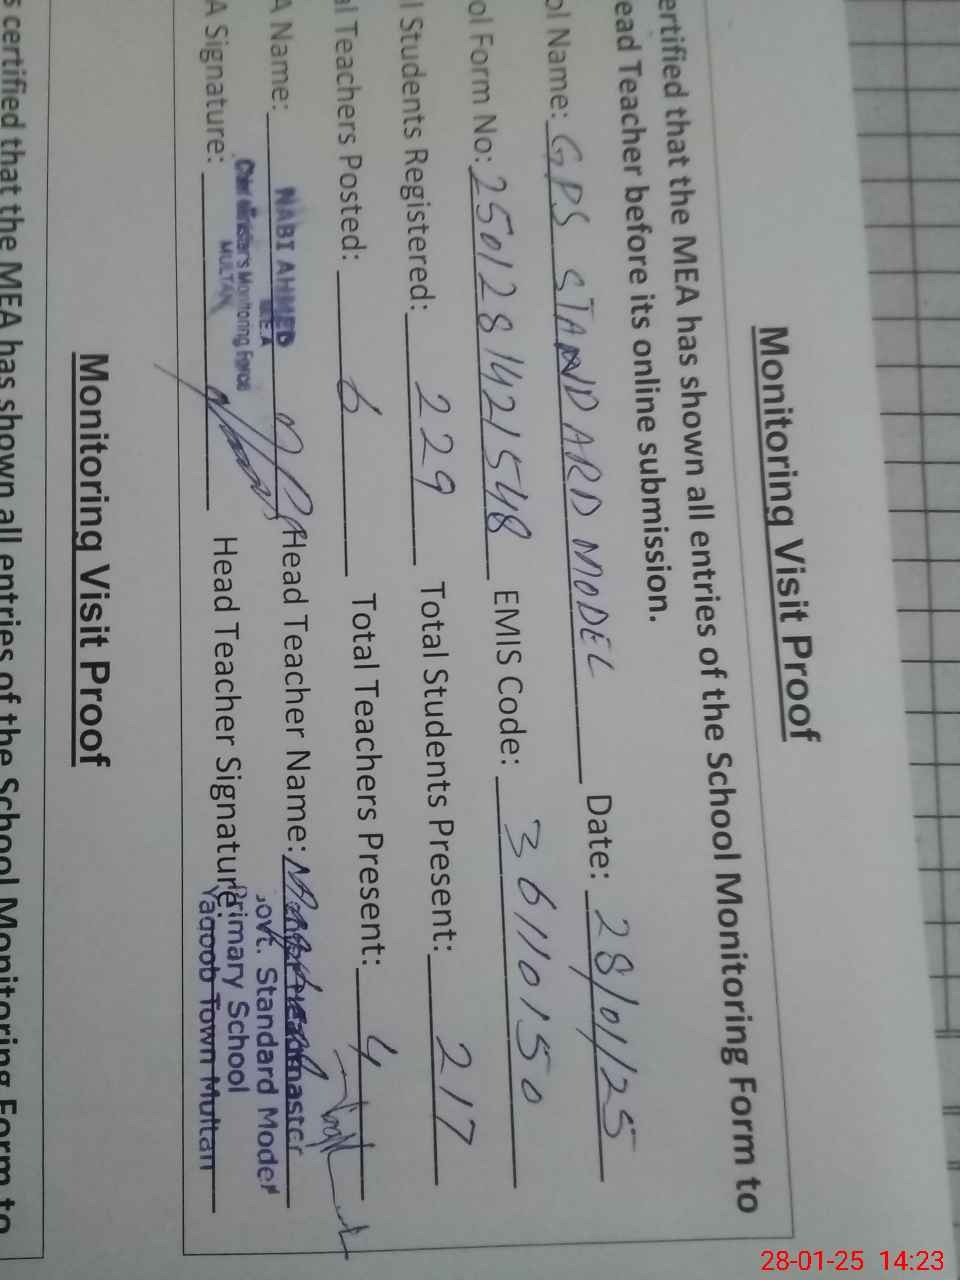 Monitoring Visit Proof
ertified that the MEA has shown all entries of the School Monitoring Form to
ead Teacher before its online submission.
ol Name: GPS STANDARD MODEL Date: 28/01/25
ol Form No: 2501281421548 EMIS Code: 36110150
l Students Registered: 229 Total Students Present: 217
al Teachers Posted: 6 Total Teachers Present: 4
A Name: NABI AHMED Head Teacher Name:
M.E.A
Chief Minister's Monitoring Force
MULTAN
A Signature: Head Teacher Signature:
Headmaster
Govt. Standard Model
Primary School
Yaqoob Town Multan
Monitoring Visit Proof
s certified that the MEA has shown all entries of the School Monitoring Form to
28-01-25 14:23